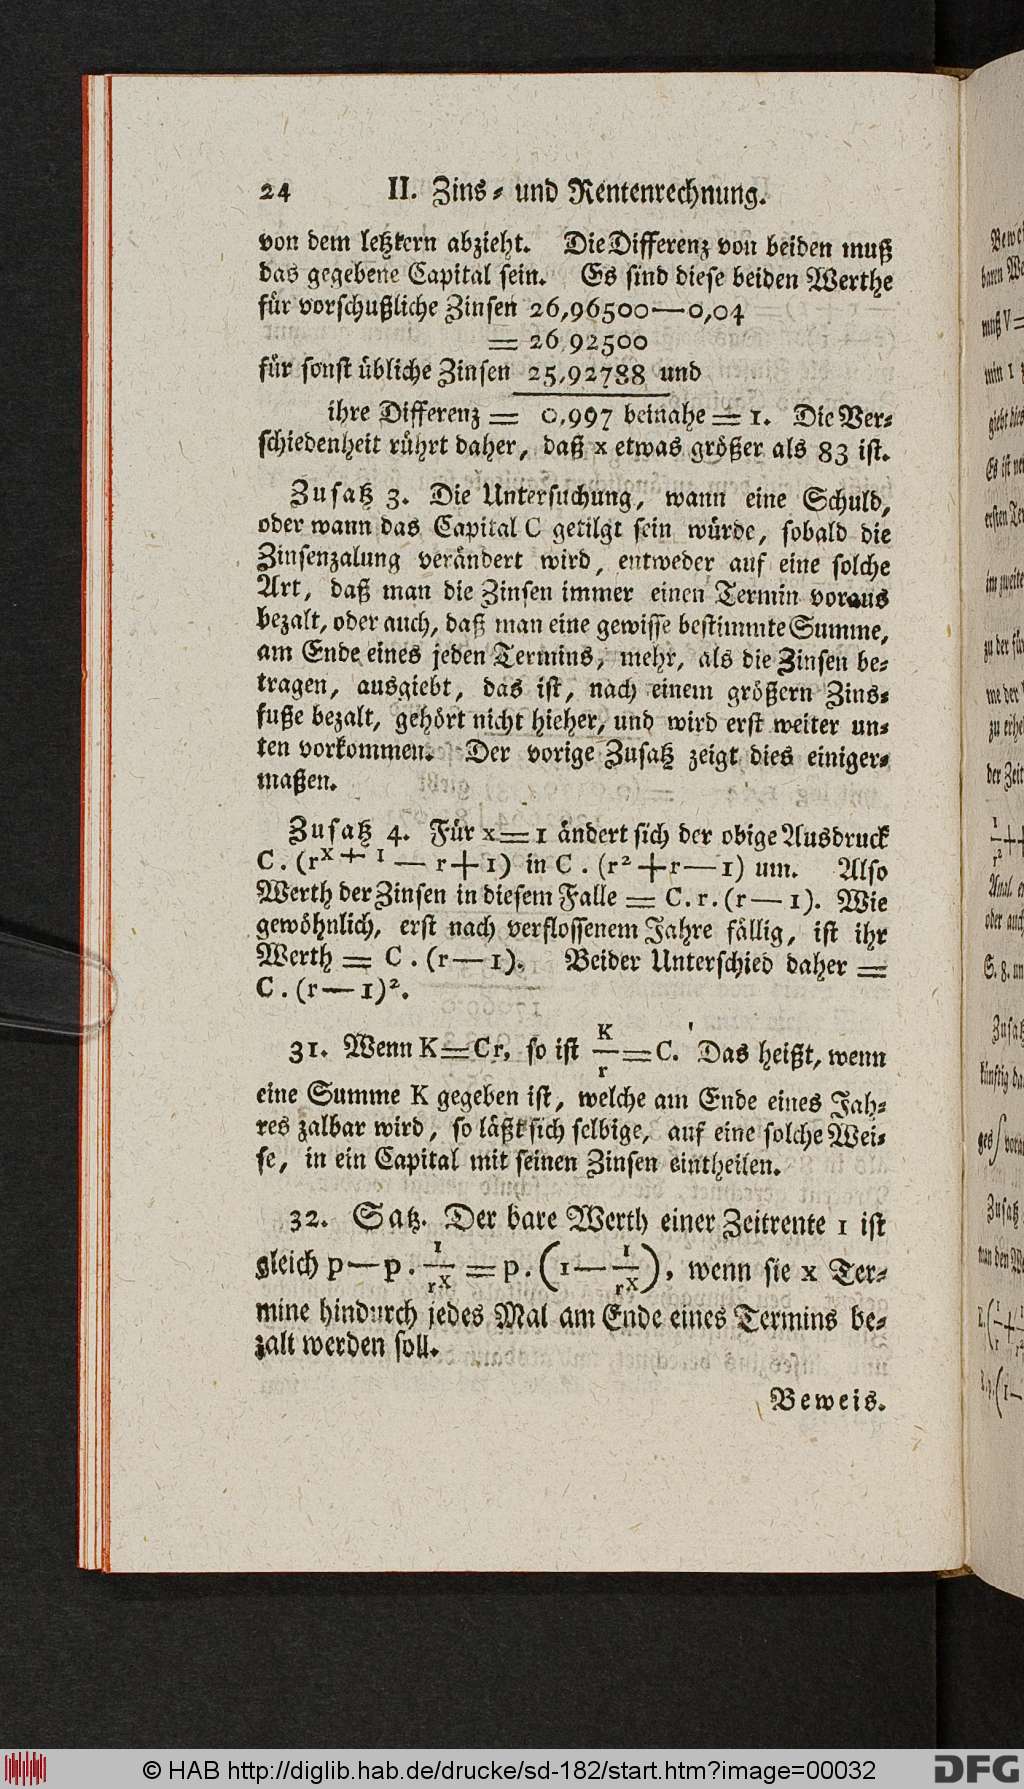 24 II. Zins- und Rentenrechnung.
von dem letztern abzieht. Die Differenz von beiden muß
das gegebene Capital sein. Es sind diese beiden Werthe
für vorschußliche Zinsen 26,96500—0,04
= 26,92500
für sonst übliche Zinsen 25,92788 und
ihre Differenz = 0,997 beinahe = 1. Die Ver-
schiedenheit rührt daher, daß x etwas größer als 83 ist.
Zusatz 3. Die Untersuchung, wann eine Schuld,
oder wann das Capital C getilgt sein würde, sobald die
Zinsenzalung verändert wird, entweder auf eine solche
Art, daß man die Zinsen immer einen Termin voraus
bezalt, oder auch, daß man eine gewisse bestimmte Summe,
am Ende eines jeden Termins, mehr, als die Zinsen be-
tragen, ausgiebt, das ist, nach einem größern Zins-
fuße bezalt, gehört nicht hieher, und wird erst weiter un-
ten vorkommen. Der vorige Zusatz zeigt dies einiger-
maßen.
Zusatz 4. Für x=1 ändert sich der obige Ausdruck
C.(r^{x+1} — r+1) in C.(r²+r—1) um. Also
Werth der Zinsen in diesem Falle = C.r.(r—1). Wie
gewöhnlich, erst nach verflossenem Jahre fällig, ist ihr
Werth = C.(r—1). Beider Unterschied daher =
C.(r—1)².
31. Wenn K=Cr, so ist K/r=C. Das heißt, wenn
eine Summe K gegeben ist, welche am Ende eines Jah-
res zalbar wird, so läßt sich selbige, auf eine solche Wei-
se, in ein Capital mit seinen Zinsen eintheilen.
32. Satz. Der bare Werth einer Zeitrente 1 ist
gleich p—p.1/r^x = p.(1—1/r^x), wenn sie x Ter-
mine hindurch jedes Mal am Ende eines Termins be-
zalt werden soll.
Beweis.
© HAB http://diglib.hab.de/drucke/sd-182/start.htm?image=00032
DFG